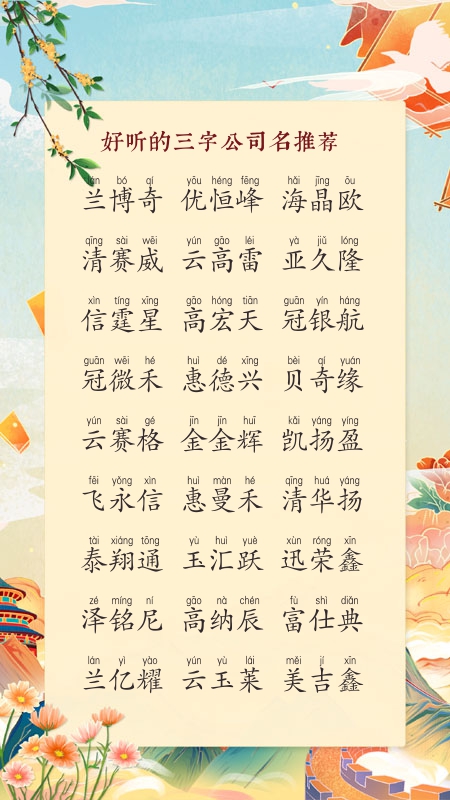 好听的三字公司名推荐
lán bó qí yōu héng fēng hǎi jīng ōu
兰博奇 优恒峰 海晶欧
qīng sài wēi yún gāo léi yà jiǔ lóng
清赛威 云高雷 亚久隆
xìn tíng xīng gāo hóng tiān guān yín háng
信霆星 高宏天 冠银航
guān wēi hé huì dé xīng bèi qí yuán
冠微禾 惠德兴 贝奇缘
yún sài gé jīn jīn huī kǎi yáng yíng
云赛格 金金辉 凯扬盈
fēi yǒng xìn huì màn hé qīng huá yáng
飞永信 惠曼禾 清华扬
tài xiáng tōng yù huì yuè xùn róng xīn
泰翔通 玉汇跃 迅荣鑫
zé míng ní gāo nà chén fù shì diǎn
泽铭尼 高纳辰 富仕典
lán yì yào yún yù lái měi jí xīn
兰亿耀 云玉莱 美吉鑫